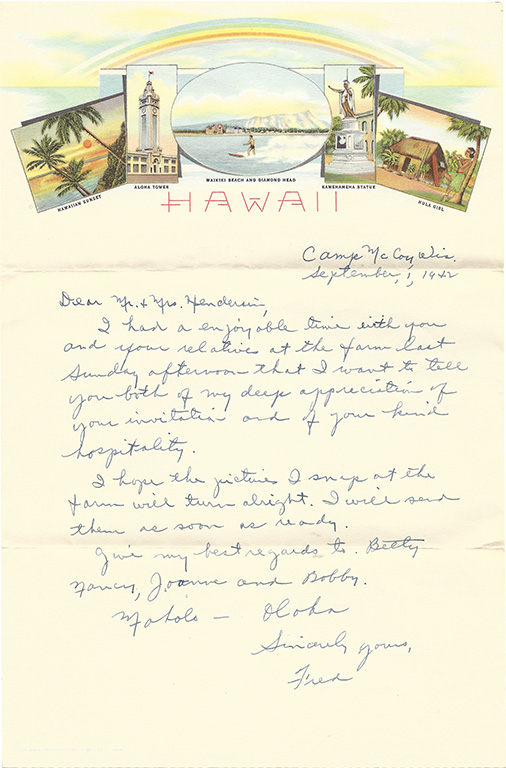 HAWAIIAN SUNSET
ALOHA TOWER
WAIKIKI BEACH AND DIAMOND HEAD
KAMEHAMEHA STATUE
HULA GIRL
HAWAII
Camp McCoy, Wis.
September, 1, 1942
Dear Mr. & Mrs. Henderson,
I had a enjoyable time with you
and your relatives at the farm last
Sunday afternoon that I want to tell
you both of my deep appreciation of
your invitation and of your kind
hospitality.
I hope the pictures I snap at the
farm will turn alright. I will send
them as soon as ready.
Give my best regards to. Betty
Nancy, Joanne and Bobby.
Mahalo — Aloha
Sincerely yours,
Fred